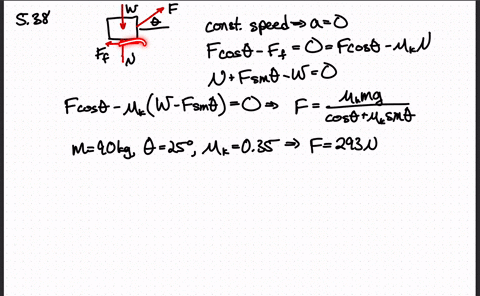 5.38
W
F
θ
F_f
N
const. speed ⇒ a=0
Fcosθ - F_f = 0 = Fcosθ - μ_k N
N + Fsinθ - W = 0
Fcosθ - μ_k(W - Fsinθ) = 0 ⇒ F = μ_k mg / (cosθ + μ_k sinθ)
m = 90kg, θ = 25°, μ_k = 0.35 ⇒ F = 293N